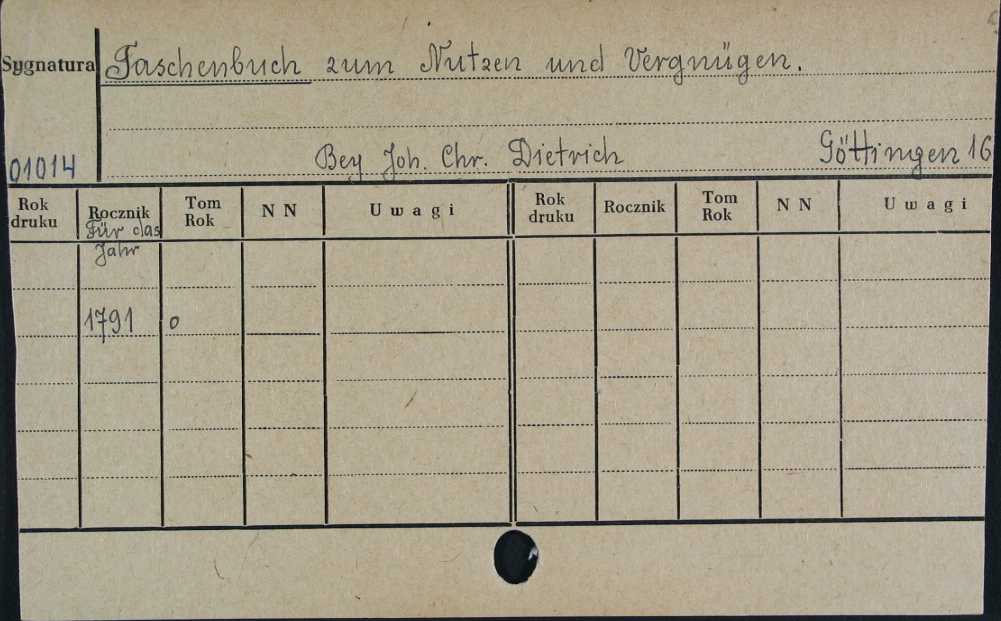 Sygnatura Taschenbuch zum Nutzen und Vergnügen.
01014 Bey Joh. Chr. Dietrich Göttingen 16
Rok druku Rocznik Tom Rok N N Uwagi Rok druku Rocznik Tom Rok N N Uwagi
Für das
Jahr
1791 o